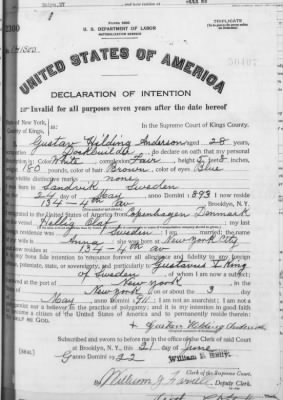 TRIPLICATE
U. S. DEPARTMENT OF LABOR
NATURALIZATION SERVICE
UNITED STATES OF AMERICA
DECLARATION OF INTENTION
Invalid for all purposes seven years after the date hereof
State of New York,
County of Kings,
In the Supreme Court of Kings County.
Gustav Hilding Anderson aged 28 years,
occupation Dockbuilder, do declare on oath that my personal
description is: Color White complexion Fair, height 5 feet 8 inches,
weight 180 pounds, color of hair Brown, color of eyes Blue
other visible distinctive marks none
Sweden
May, anno Domini 1893 I now reside
134 - 4th Av Brooklyn, N.Y.
emigrated to the United States of America from Copenhagen Denmark
my last
foreign residence was Sweden I am married; the name
of my wife is Anna she was born at New York City
and now resides at 134 - 4th av
It is my bona fide intention to renounce forever all allegiance and fidelity to any foreign
prince, potentate, state, or sovereignty, and particularly to Gustavus V King
of Sweden of whom I am now a subject
port of New York in the
New York on or about the 3 day
May, anno Domini 1911: I am not an anarchist; I am not a
polygamist nor a believer in the practice of polygamy; and it is my intention in good faith
to become a citizen of the United States of America and to permanently reside therein:
SO HELP ME GOD.
Gustav Hilding Anderson
Subscribed and sworn to before me in the office of the Clerk of said Court
at Brooklyn, N. Y., this 21 day of June
anno Domini 1922
[SEAL]
William E. Kelly,
Clerk of the Supreme Court.
Deputy Clerk.